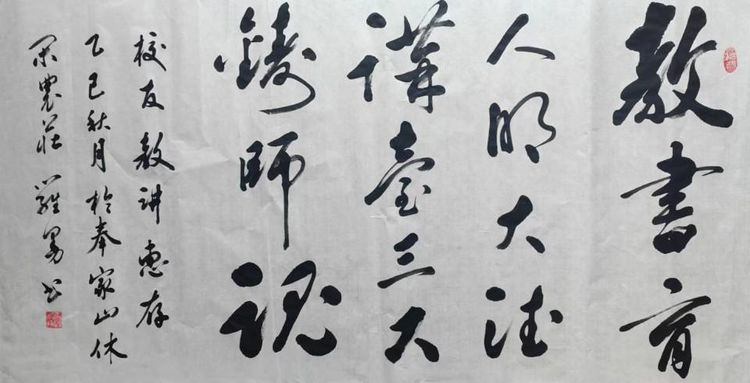 教書育
人明大德
講臺三尺
鑄師魂
校友教讲惠存
乙巳秋月於奉家山休
闲農莊 羅勇书